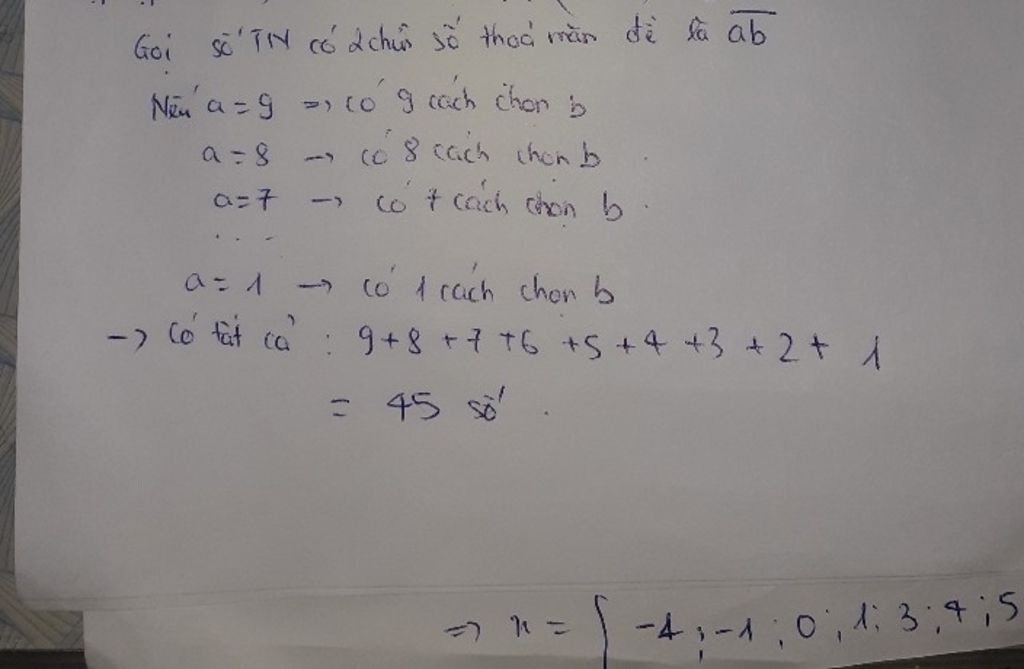 Gọi số TN có 2 chữ số thoả mãn đề là ab
Nếu a = 9 => có 9 cách chọn b
a = 8 → có 8 cách chọn b
a = 7 → có 7 cách chọn b
...
a = 1 → có 1 cách chọn b
→ Có tất cả : 9 + 8 + 7 + 6 + 5 + 4 + 3 + 2 + 1
= 45 số.
=> n = { -4 ; -1 ; 0 ; 1 ; 3 ; 4 ; 5